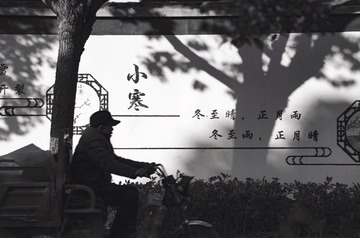 小寒
冬至晴，正月雨
冬至雨，正月晴